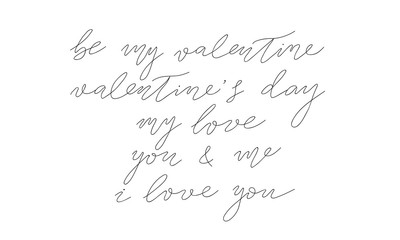 be my valentine
valentine's day
my love
you & me
i love you